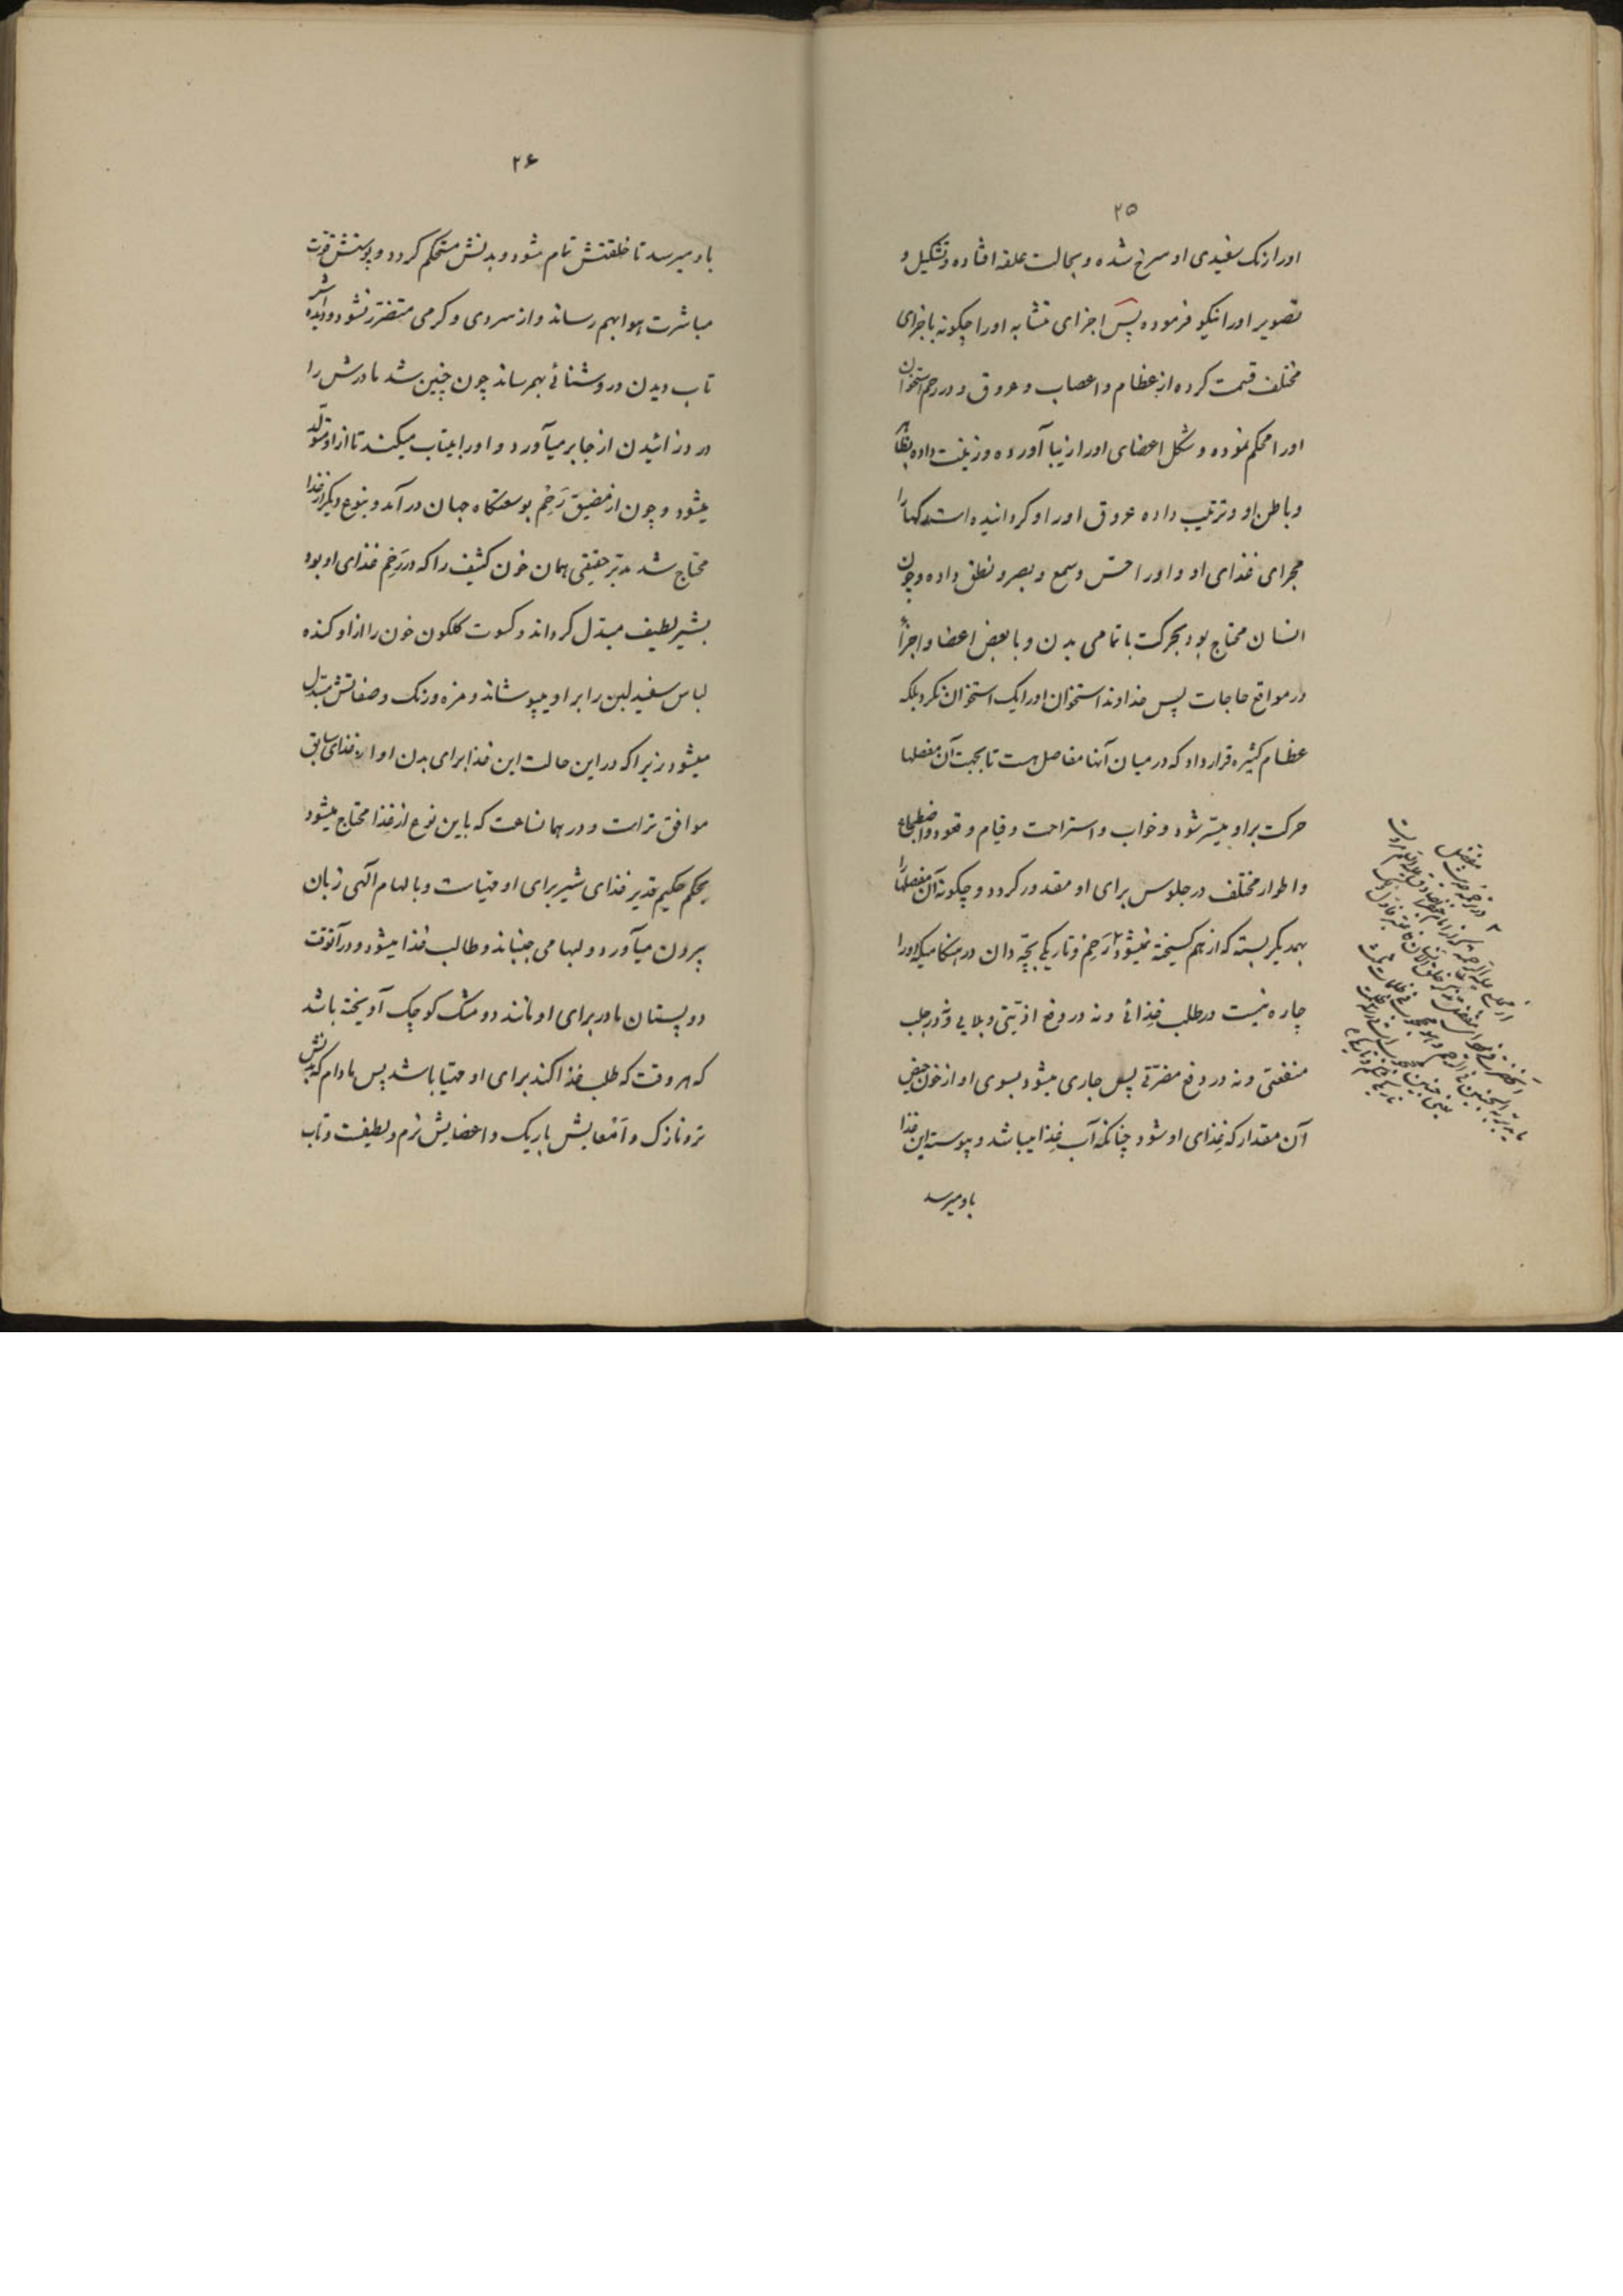 ۲۵
او را از نک سفیدی او سرخ شده و بحالت علقه افتاده و تشکیل و
تصویر او را نیکو فرموده پس اجزای متشابه او را چگونه باجزای
مختلف قسمت کرده از عظام و اعصاب و عروق و در رحم استخوان
او را محکم نموده و شکل اعضای او را زیبا آورده و زینت داده بظاهر
و باطن او و ترتیب داده عروق او را و گردانیده است رکها را
مجرای غذای او و او را حسّ و سمع و بصر و نطق داده و چون
انسان محتاج بود بحرکت با تمامی بدن و با بعض اعضا و اجزأ
در مواقع حاجات پس خداوند استخوان او را یک استخوان نکرد بلکه
عظام کثیره قرار داد که در میان آنها مفاصل هست تا بجهت آن مفصلها
حرکت بر او میسّر شود و خواب و استراحت و قیام و قعود و اضطجاع
و اطوار مختلف در جلوس برای او مقدور کردد و چکونه آن مفصلها را
بهمدیکر بسته که از هم کسیخته نمیشود ۲ رَحِم و تاریکی بچّه دان در هنکامیکه او را
چاره نیست در طلب غِذائی و نه در دفع اذیّتی و بلایی و نه در جلب
منفعتی و نه در دفع مضرّتی پس جاری میشود بسوی او از خون حیض
آن مقدار که غِذای او شود چنانکه آب غِذا میباشد و پیوسته این غذا
باو میرسد
۲۶
باو میرسد تا خلقتش تمام شود و بدنش مستحکم کردد و پوستش قوّت
مباشرت هوا بهم رساند و از سردی و کرمی متضرّر نشود و دیده اش
تاب دیدن روشنائی بهم رساند چون چنین شد مادرش را
درد زائیدن از جا بر میآورد و او را بیتاب میکند تا از او متولّد
میشود و چون از مضیق رَحِم بوسعتگاه جهان در آمد و بنوع دیکر از غذا
محتاج شد مدبّر حقیقی همان خون کثیف را که در رَحِم غذای او بود
بشیر لطیف مبدّل کرداند و کسوت کلکون خون را از او کنده
لباس سفید لبن را بر او میپوشاند و مزه و رنک و صفاتش مبدّل
میشود زیرا که در این حالت این غذا برای بدن او از غذای سابق
موافق تر است و در همانساعت که باین نوع از غِذا محتاج میشود
بحکم حکیم قدیر غذای شیر برای او مهیّاست و بالهام الهی زبان
بیرون میآورد و لبها می جنباند و طالب غذا میشود و در آنوقت
دو پستان مادر برای او مانند دو مشک کوچک آویخته باشد
که هر وقت که طلب غذا کند برای او مهیّا باشد پس مادام که بدنش
تر و نازک و اَمْعایش باریک و اعضایش نرم و لطیفت و تاب